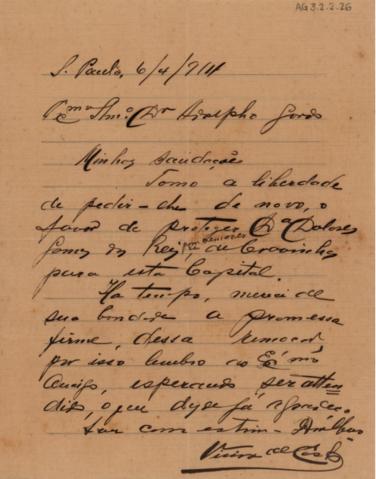 AG3.2.2.26
S. Paulo, 6/4/914
Exmo Snr. Dr Adolpho Gordo
Minhas saudações
Tomo a liberdade
de pedir-lhe de novo, o
favor de proteger Da Dolores
Gomes dos Reis, de Cravinhos
para esta Capital.
Ha tempo, mereci de
sua bondade a promessa
firme, dessa remoção
por isso lembro ao Exmo
Amigo, esperando ser atten
dido, o que desde já agradeço.
com estima
Vieira de